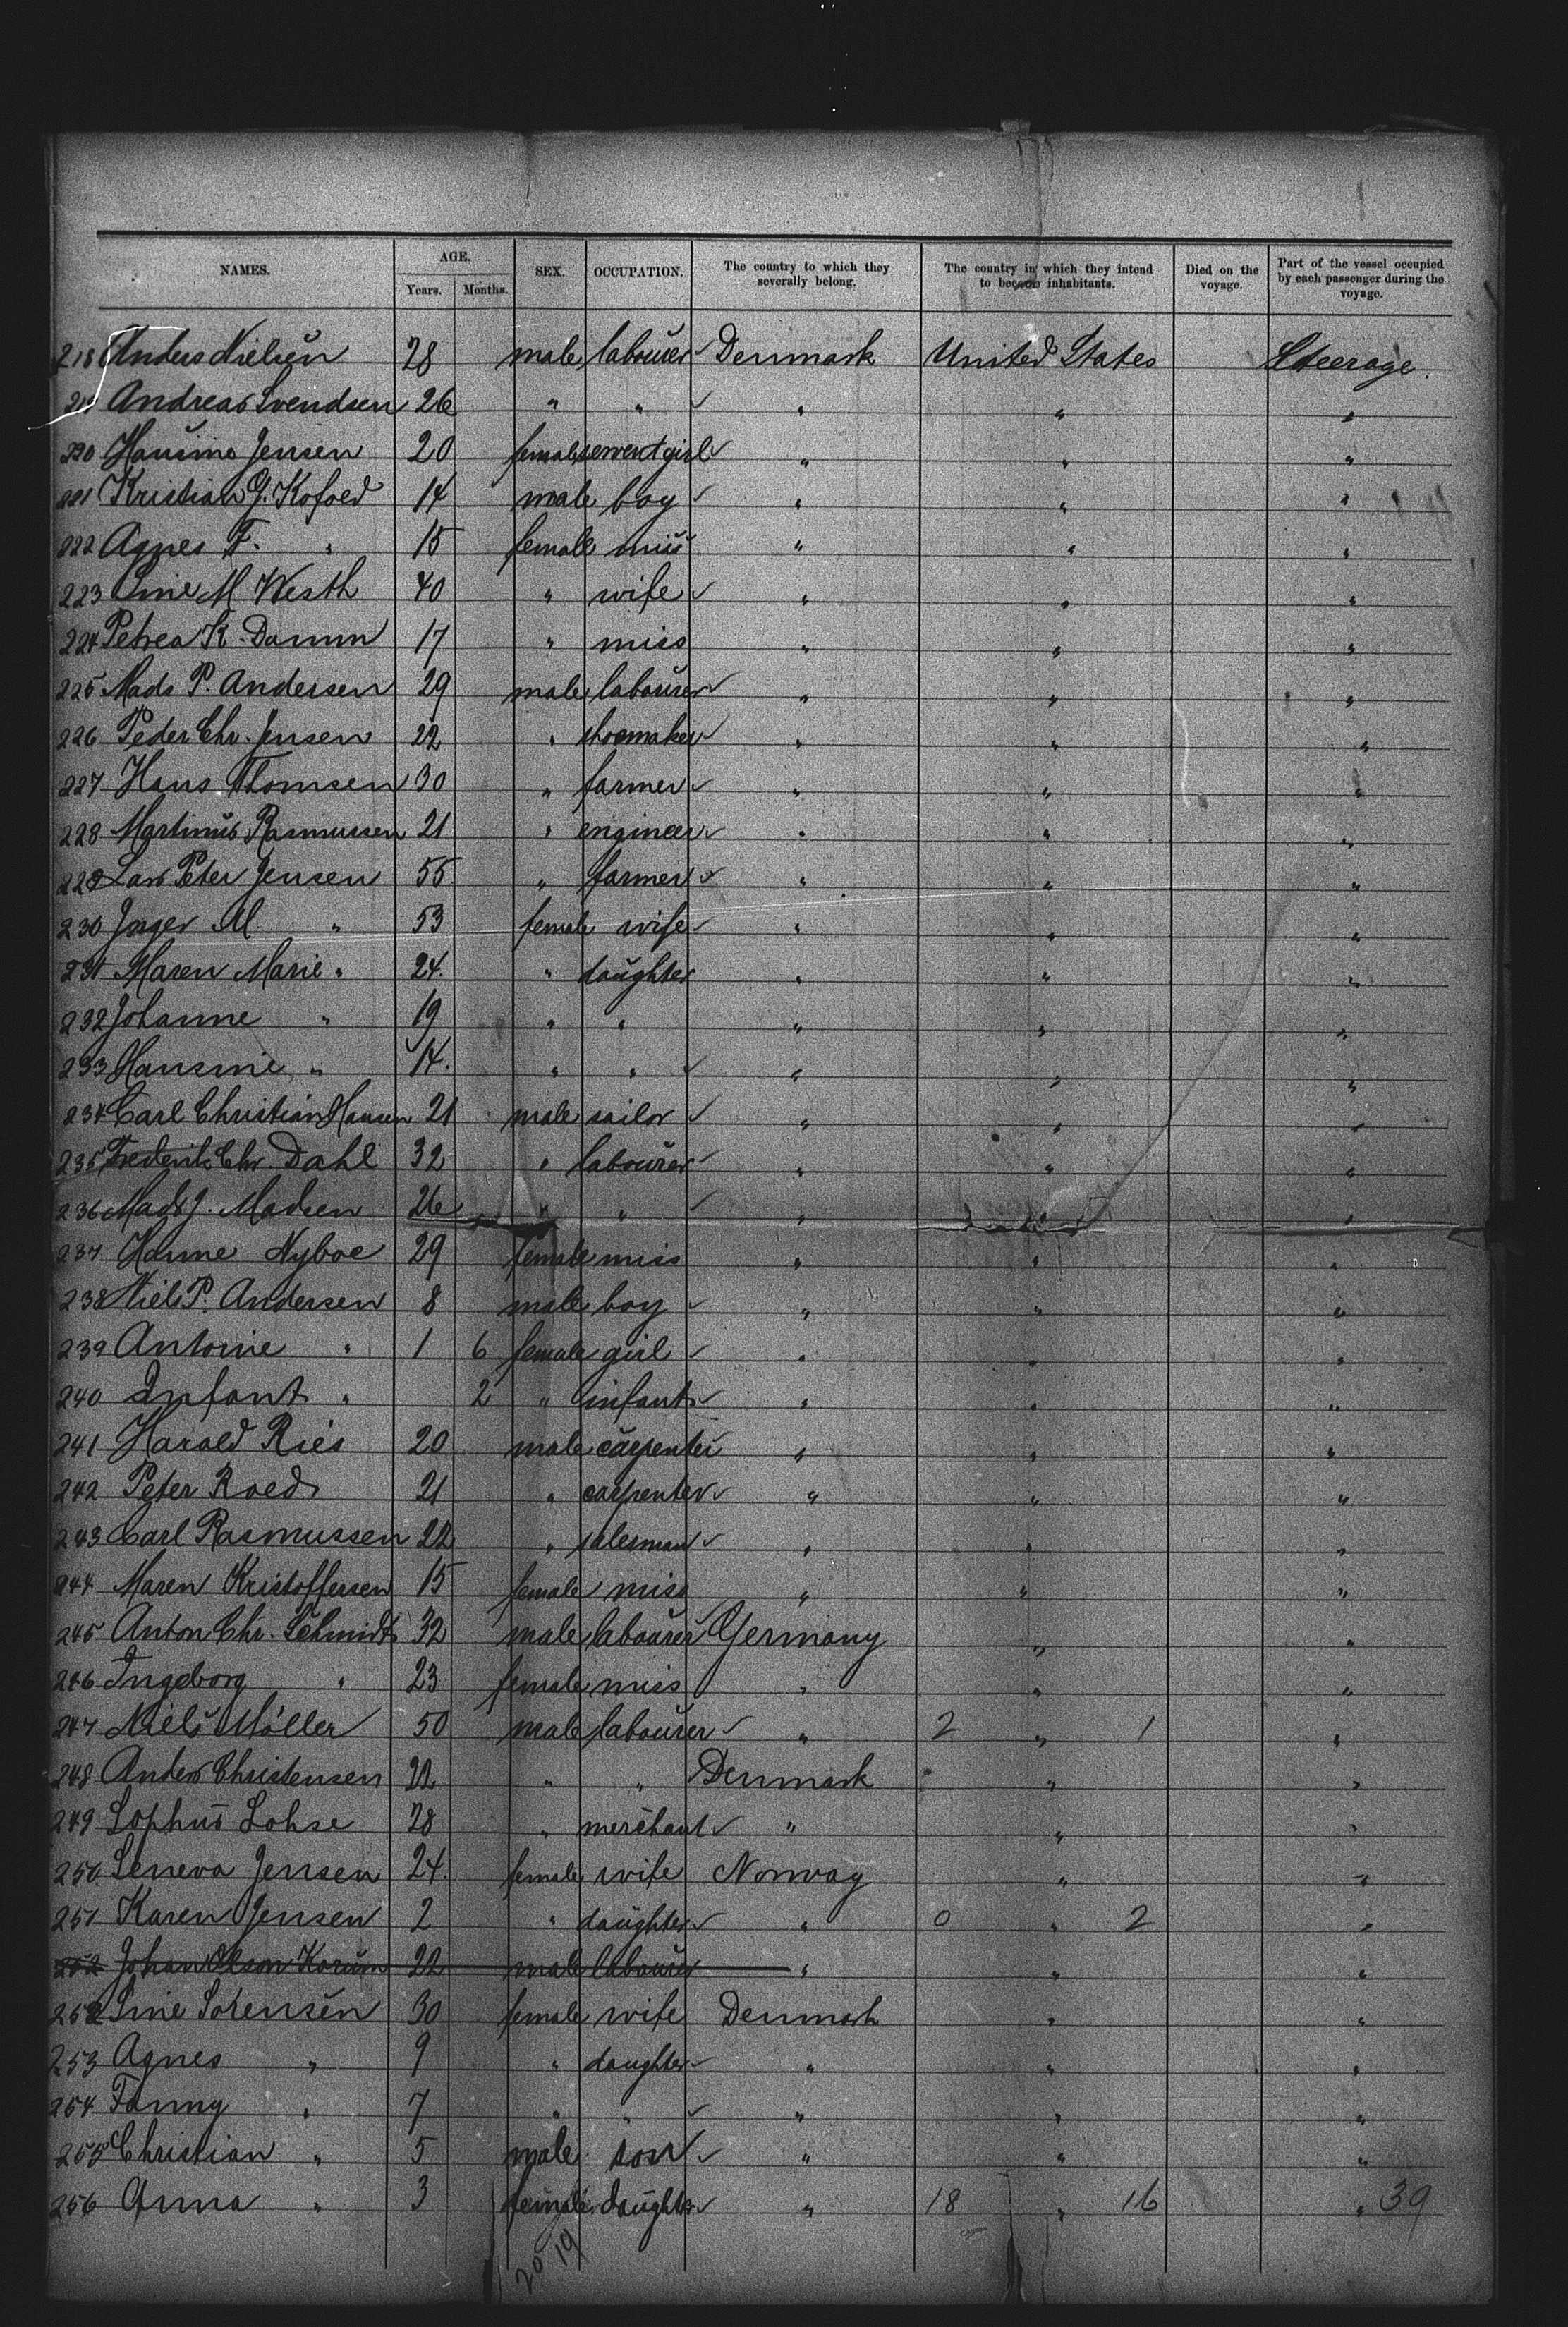 NAMES. AGE. Years. Months. SEX. OCCUPATION. The country to which they severally belong. The country in which they intend to become inhabitants. Died on the voyage. Part of the vessel occupied by each passenger during the voyage.
218 Anders Nielsen 28 male labourer Denmark United States Steerage.
219 Andreas Svendsen 26 " " " " "
220 Hansine Jensen 20 female servent girl " " "
221 Kristian G. Kofoed 14 male boy " " "
222 Agnes F. " 15 female miss " " "
223 Sine M Westh 40 " wife " " "
224 Petrea K. Damm 17 " miss " " "
225 Mads P. Andersen 29 male labourer " " "
226 Peder Chr. Jensen 22 " shoemaker " " "
227 Hans Thomsen 30 " farmer " " "
228 Martinus Rasmussen 21 " engineer " " "
229 Lars Peter Jensen 55 " farmer " " "
230 Inger M. " 53 female wife " " "
231 Maren Marie " 24. " daughter " " "
232 Johanne " 19 " " " " "
233 Hansine " 14. " " " " "
234 Carl Christian Hansen 21 male sailor " " "
235 Frederik Chr. Dahl 32 " labourer " " "
236 Mads J. Madsen 26 " " " " "
237 Hanne Nyboe 29 female miss " " "
238 Niels P. Andersen 8 male boy " " "
239 Antonie " 1 6 female girl " " "
240 Infant " 2 " infant " " "
241 Harald Ries 20 male carpenter " " "
242 Peter Roed 21 " carpenter " " "
243 Carl Rasmussen 22 " salesman " " "
244 Maren Kristoffersen 15 female miss " " "
245 Anton Chr. Schmidt 32 male labourer Germany " "
246 Ingeborg " 23 female miss " " "
247 Niels Möller 50 male labourer " 2 " 1 "
248 Anders Christensen 22 " " Denmark " "
249 Sophus Lohse 28 " merchant " " "
250 Seneva Jensen 24. female wife Norway " "
251 Karen Jensen 2 " daughter " 0 " 2 "
252 Johan Olson Korum 22 male labourer " " "
252 Sine Sörensen 30 female wife Denmark " "
253 Agnes " 9 " daughter " " "
254 Fanny " 7 " " " " "
255 Christian " 5 male son " " "
256 Anna " 3 female daughter " 18 " 16 " 39
20 19